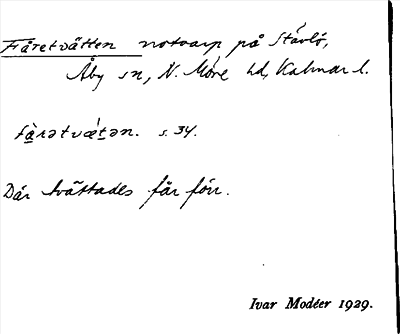 Fåretvätten notvarp på Stävlö,
Åby sn, N. Möre hd, Kalmar l.
få̱rətvǽt̠ən. s. 34.
Där tvättades får förr.
Ivar Modéer 1929.